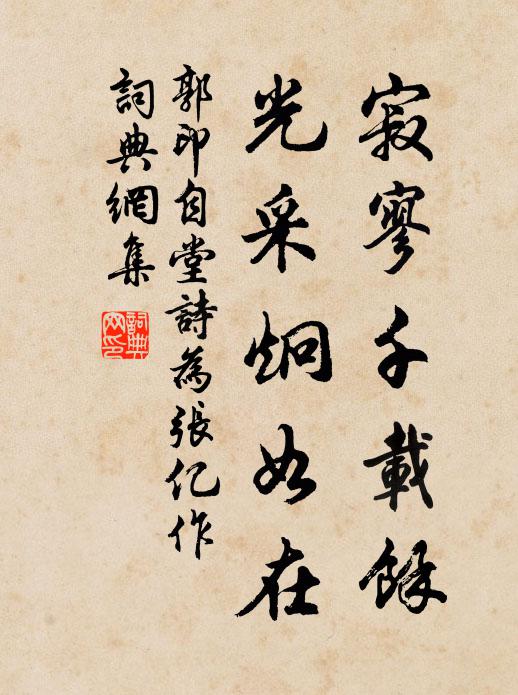 寂寥千載餘
光采炯如在
郭印自堂詩為張仁作
詞典網集
詞典
文印